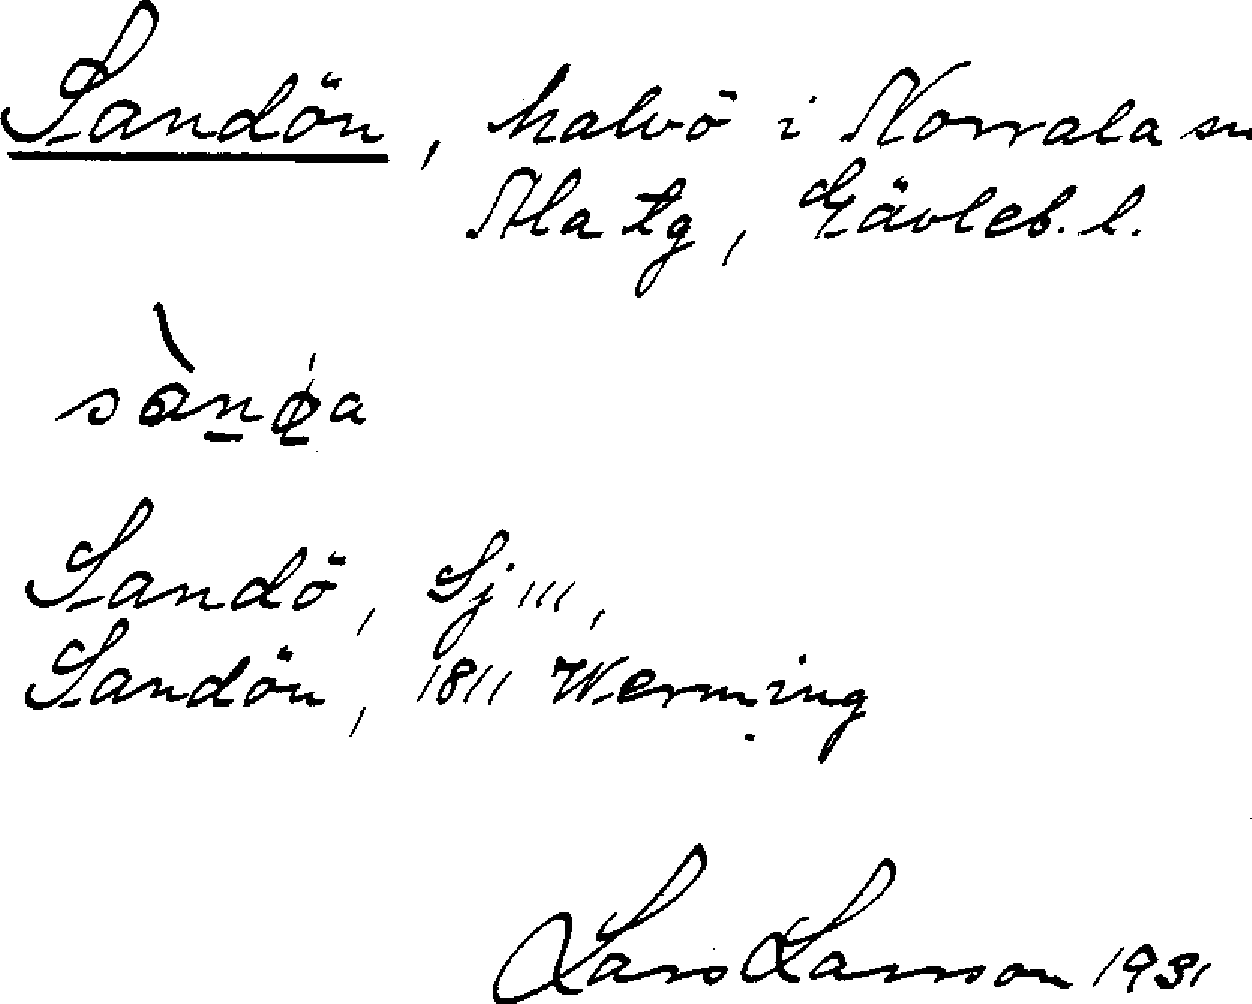 Sandön, halvö i Norrala sn
Ala tg, Gävleb. l.
Sandö, Sj 111,
Sandön, 1811 Werming
Lars Larsson 1931